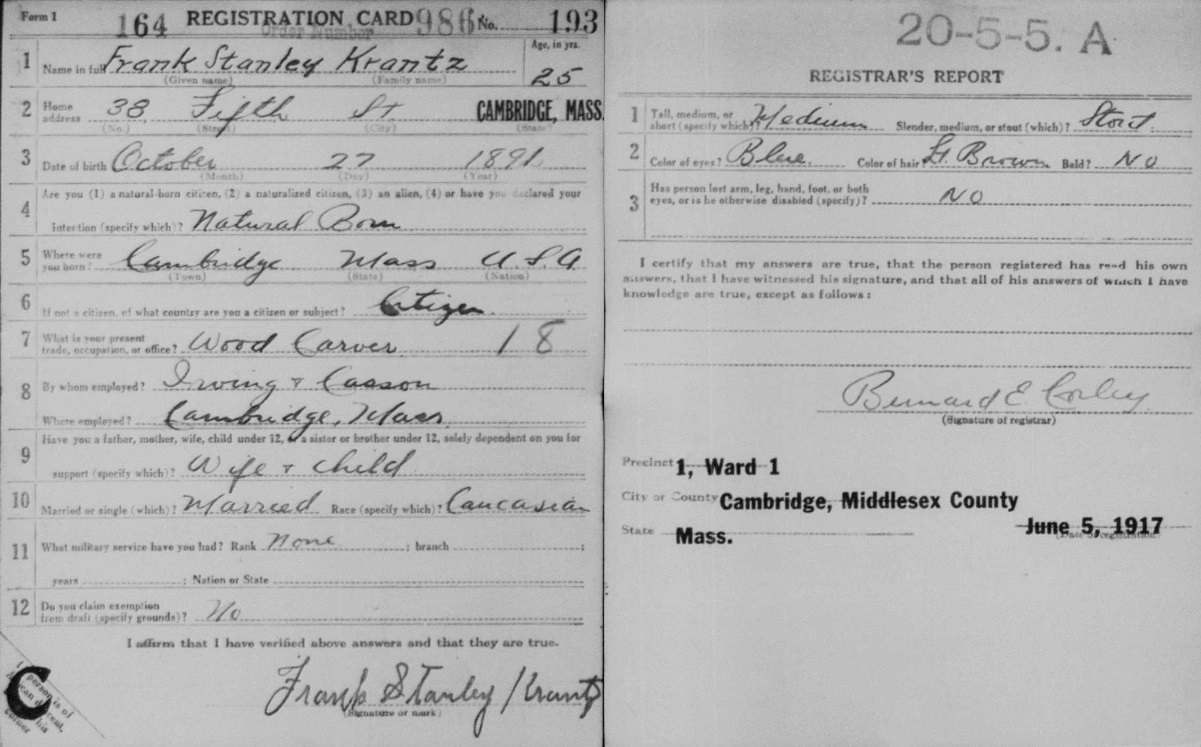 Form 1 164 REGISTRATION CARD 986 No. 193
Order Number
1 Name in full Frank Stanley Krantz Age, in yrs. 25
(Given name) (Family name)
2 Home address 38 Fifth St CAMBRIDGE, MASS.
(No.) (Street) (City) (State)
3 Date of birth October 27 1891
(Month) (Day) (Year)
4 Are you (1) a natural-born citizen, (2) a naturalized citizen, (3) an alien, (4) or have you declared your
intention (specify which)? Natural Born
5 Where were you born? Cambridge Mass U.S.A
(Town) (State) (Nation)
6 If not a citizen, of what country are you a citizen or subject? Citizen
7 What is your present trade, occupation, or office? Wood Carver 18
8 By whom employed? Irving & Casson
Where employed? Cambridge, Mass
9 Have you a father, mother, wife, child under 12, or a sister or brother under 12, solely dependent on you for
support (specify which)? Wife & child
10 Married or single (which)? Married Race (specify which)? Caucasian
11 What military service have you had? Rank None ; branch ;
years ; Nation or State
12 Do you claim exemption from draft (specify grounds)? No
I affirm that I have verified above answers and that they are true.
Frank Stanley Krantz
(Signature or mark)
person is of
C
20-5-5. A
REGISTRAR'S REPORT
1 Tall, medium, or short (specify which)? Medium Slender, medium, or stout (which)? Stout
2 Color of eyes? Blue Color of hair? Lt. Brown Bald? No
3 Has person lost arm, leg, hand, foot, or both
eyes, or is he otherwise disabled (specify)? No
I certify that my answers are true, that the person registered has read his own
answers, that I have witnessed his signature, and that all of his answers of which I have
knowledge are true, except as follows:
Bernard E Corley
(Signature of registrar)
Precinct 1, Ward 1
City or County Cambridge, Middlesex County
State Mass. June 5, 1917
(Date of registration)